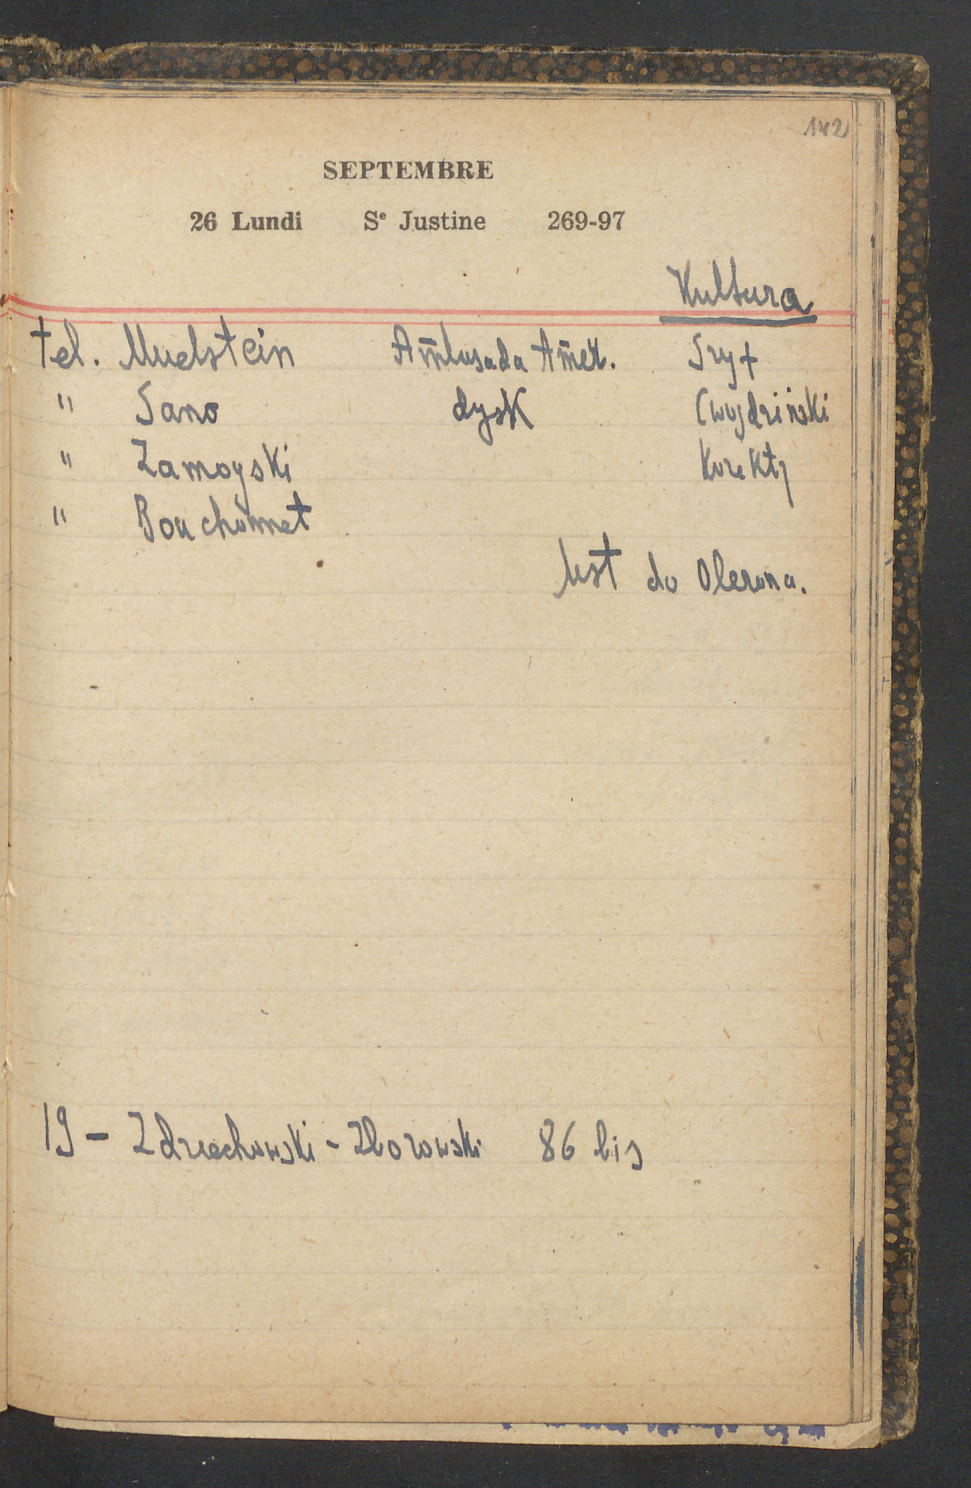 142
SEPTEMBRE
26 Lundi Sᵉ Justine 269-97
Kultura
tel. Muelstein Ambasada Amer. Szyf
" Sano dysk Cwojdziński
" Zamoyski Korekty
" Bouchonnet
List do Olerona.
19 – Zdziechowski - Zborowski 86 bis